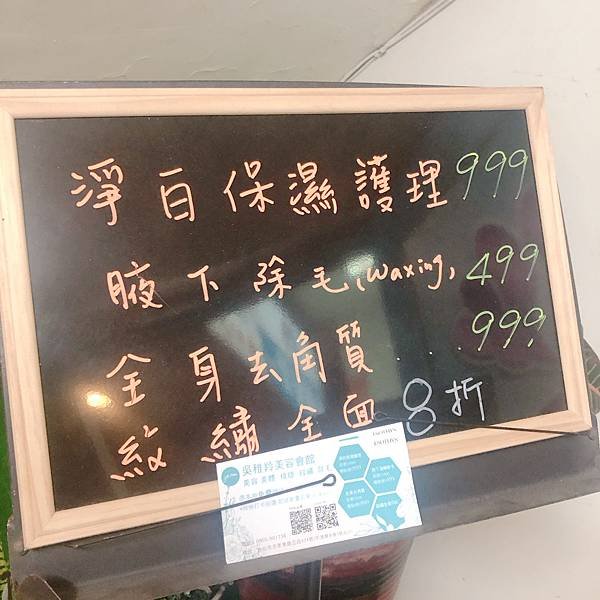 淨白保濕護理 999
腋下除毛(waxing) 499
全身去角質... 999
紋繡全面8折
吳稚羚美容會館